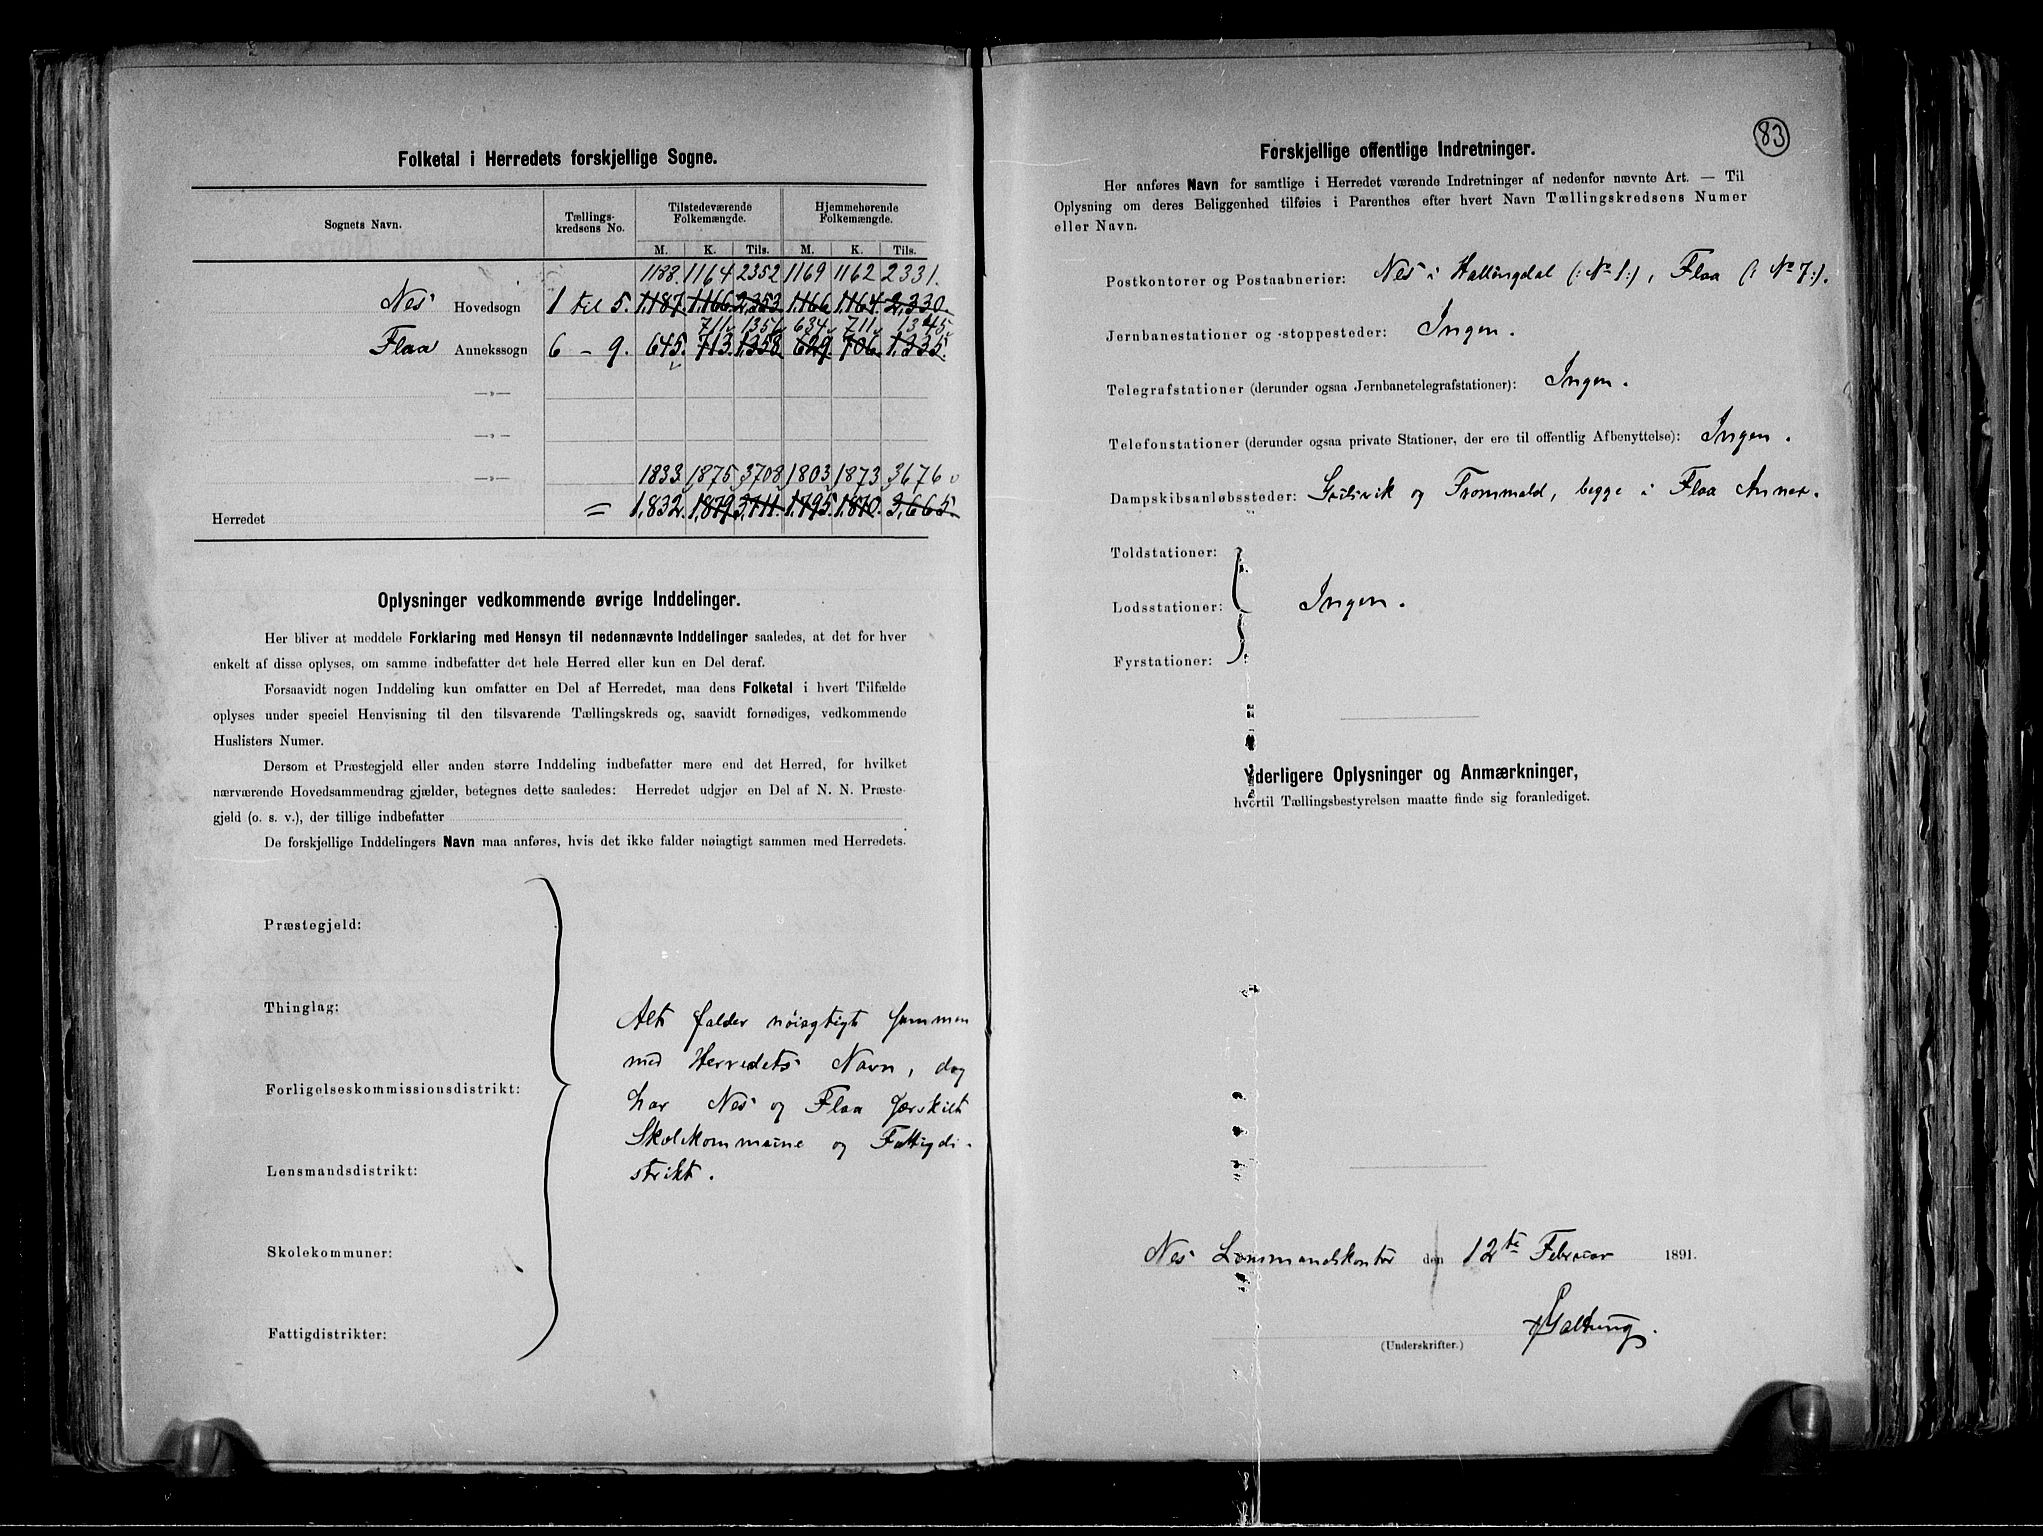 Folketal i Herredets forskjellige Sogne.
Sognets Navn. Tællings-kredsens No. Tilstedeværende Folkemængde. Hjemmehørende Folkemængde.
M. K. Tils. M. K. Tils.
1188. 1164 2352 1169 1162 2331.
Nes Hovedsogn 1 til 5. 1,187. 1,166. 2,353. 1,166. 1,164. 2,330.
711 1356 634 711 1345
Flaa Annekssogn 6 - 9. 645. 713. 1,358. 629. 706. 1,335.
—„—
—„—
—„— 1833 1875 3708 1803 1873 3676
Herredet = 1,832. 1,879. 3,711. 1,795. 1,870. 3,665.
Oplysninger vedkommende øvrige Inddelinger.
Her bliver at meddele Forklaring med Hensyn til nedennævnte Inddelinger saaledes, at det for hver
enkelt af disse oplyses, om samme indbefatter det hele Herred eller kun en Del deraf.
Forsaavidt nogen Inddeling kun omfatter en Del af Herredet, maa dens Folketal i hvert Tilfælde
oplyses under speciel Henvisning til den tilsvarende Tællingskreds og, saavidt fornødiges, vedkommende
Huslisters Numer.
Dersom et Præstegjeld eller anden større Inddeling indbefatter mere end det Herred, for hvilket
nærværende Hovedsammendrag gjælder, betegnes dette saaledes: Herredet udgjør en Del af N. N. Præste-
gjeld (o. s. v.), der tillige indbefatter
De forskjellige Inddelingers Navn maa anføres, hvis det ikke falder nøiagtigt sammen med Herredets.
Præstegjeld:
Thinglag:
Forligelseskommissionsdistrikt:
Lensmandsdistrikt:
Skolekommuner:
Fattigdistrikter:
Alt falder nöiagtigt sammen
med Herredets Navn, dog
har Nes og Flaa særskilt
Skolekommune og Fattigdi-
strikt.
83
Forskjellige offentlige Indretninger.
Her anføres Navn for samtlige i Herredet værende Indretninger af nedenfor nævnte Art. — Til
Oplysning om deres Beliggenhed tilføies i Parenthes efter hvert Navn Tællingskredsens Numer
eller Navn.
Postkontorer og Postaabnerier: Nes i Hallingdal (: No 1:), Flaa (: No 7:).
Jernbanestationer og -stoppesteder: Ingen.
Telegrafstationer (derunder ogsaa Jernbanetelegrafstationer): Ingen.
Telefonstationer (derunder ogsaa private Stationer, der ere til offentlig Afbenyttelse): Ingen.
Dampskibsanløbssteder: Gulsvik og Trommald, begge i Flaa Annex.
Toldstationer:
Lodsstationer: Ingen.
Fyrstationer:
Yderligere Oplysninger og Anmærkninger,
hvortil Tællingsbestyrelsen maatte finde sig foranlediget.
Nes Lensmandskontor den 12te Februar 1891.
Galtung.
(Underskrifter.)